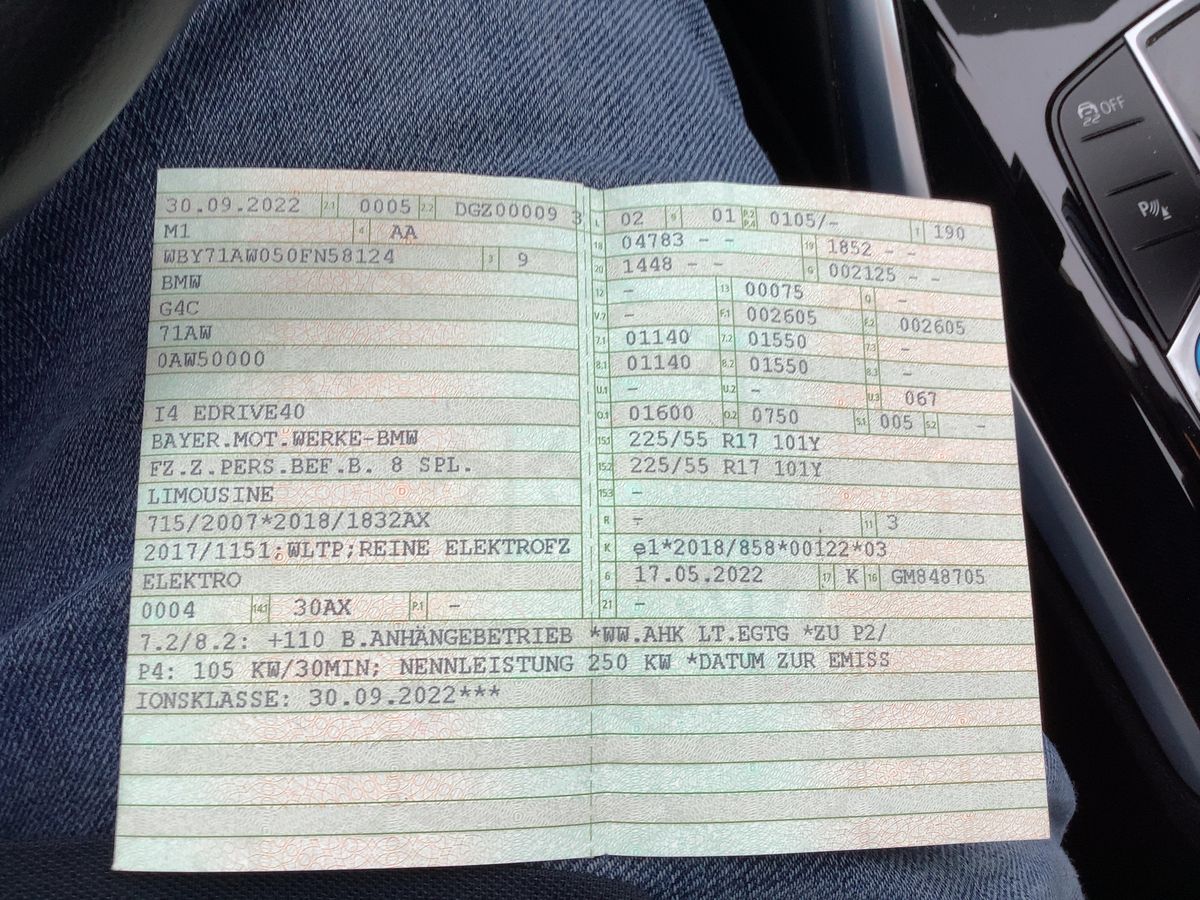 OFF
P
30.09.2022 2.1 0005 2.2 DGZ00009 3
M1 4 AA
WBY71AW050FN58124 3 9
BMW
G4C
71AW
0AW50000
I4 EDRIVE40
BAYER.MOT.WERKE-BMW
FZ.Z.PERS.BEF.B. 8 SPL.
LIMOUSINE
715/2007*2018/1832AX
2017/1151;WLTP;REINE ELEKTROFZ
ELEKTRO
0004 14.1 30AX P.1 -
L 02 9 01 P.2 P.4 0105/- T 190
18 04783 - - 19 1852 - -
20 1448 - - G 002125 - -
12 - 13 00075 Q -
V.7 - F.1 002605 F.2 002605
7.1 01140 7.2 01550 7.3 -
8.1 01140 8.2 01550 8.3 -
U.1 - U.2 - U.3 067
O.1 01600 O.2 0750 S.1 005 S.2 -
15.1 225/55 R17 101Y
15.2 225/55 R17 101Y
15.3 -
R - 11 3
K e1*2018/858*00122*03
6 17.05.2022 17 K 16 GM848705
21 -
7.2/8.2: +110 B.ANHÄNGEBETRIEB *WW.AHK LT.EGTG *ZU P2/
P4: 105 KW/30MIN; NENNLEISTUNG 250 KW *DATUM ZUR EMISS
IONSKLASSE: 30.09.2022***